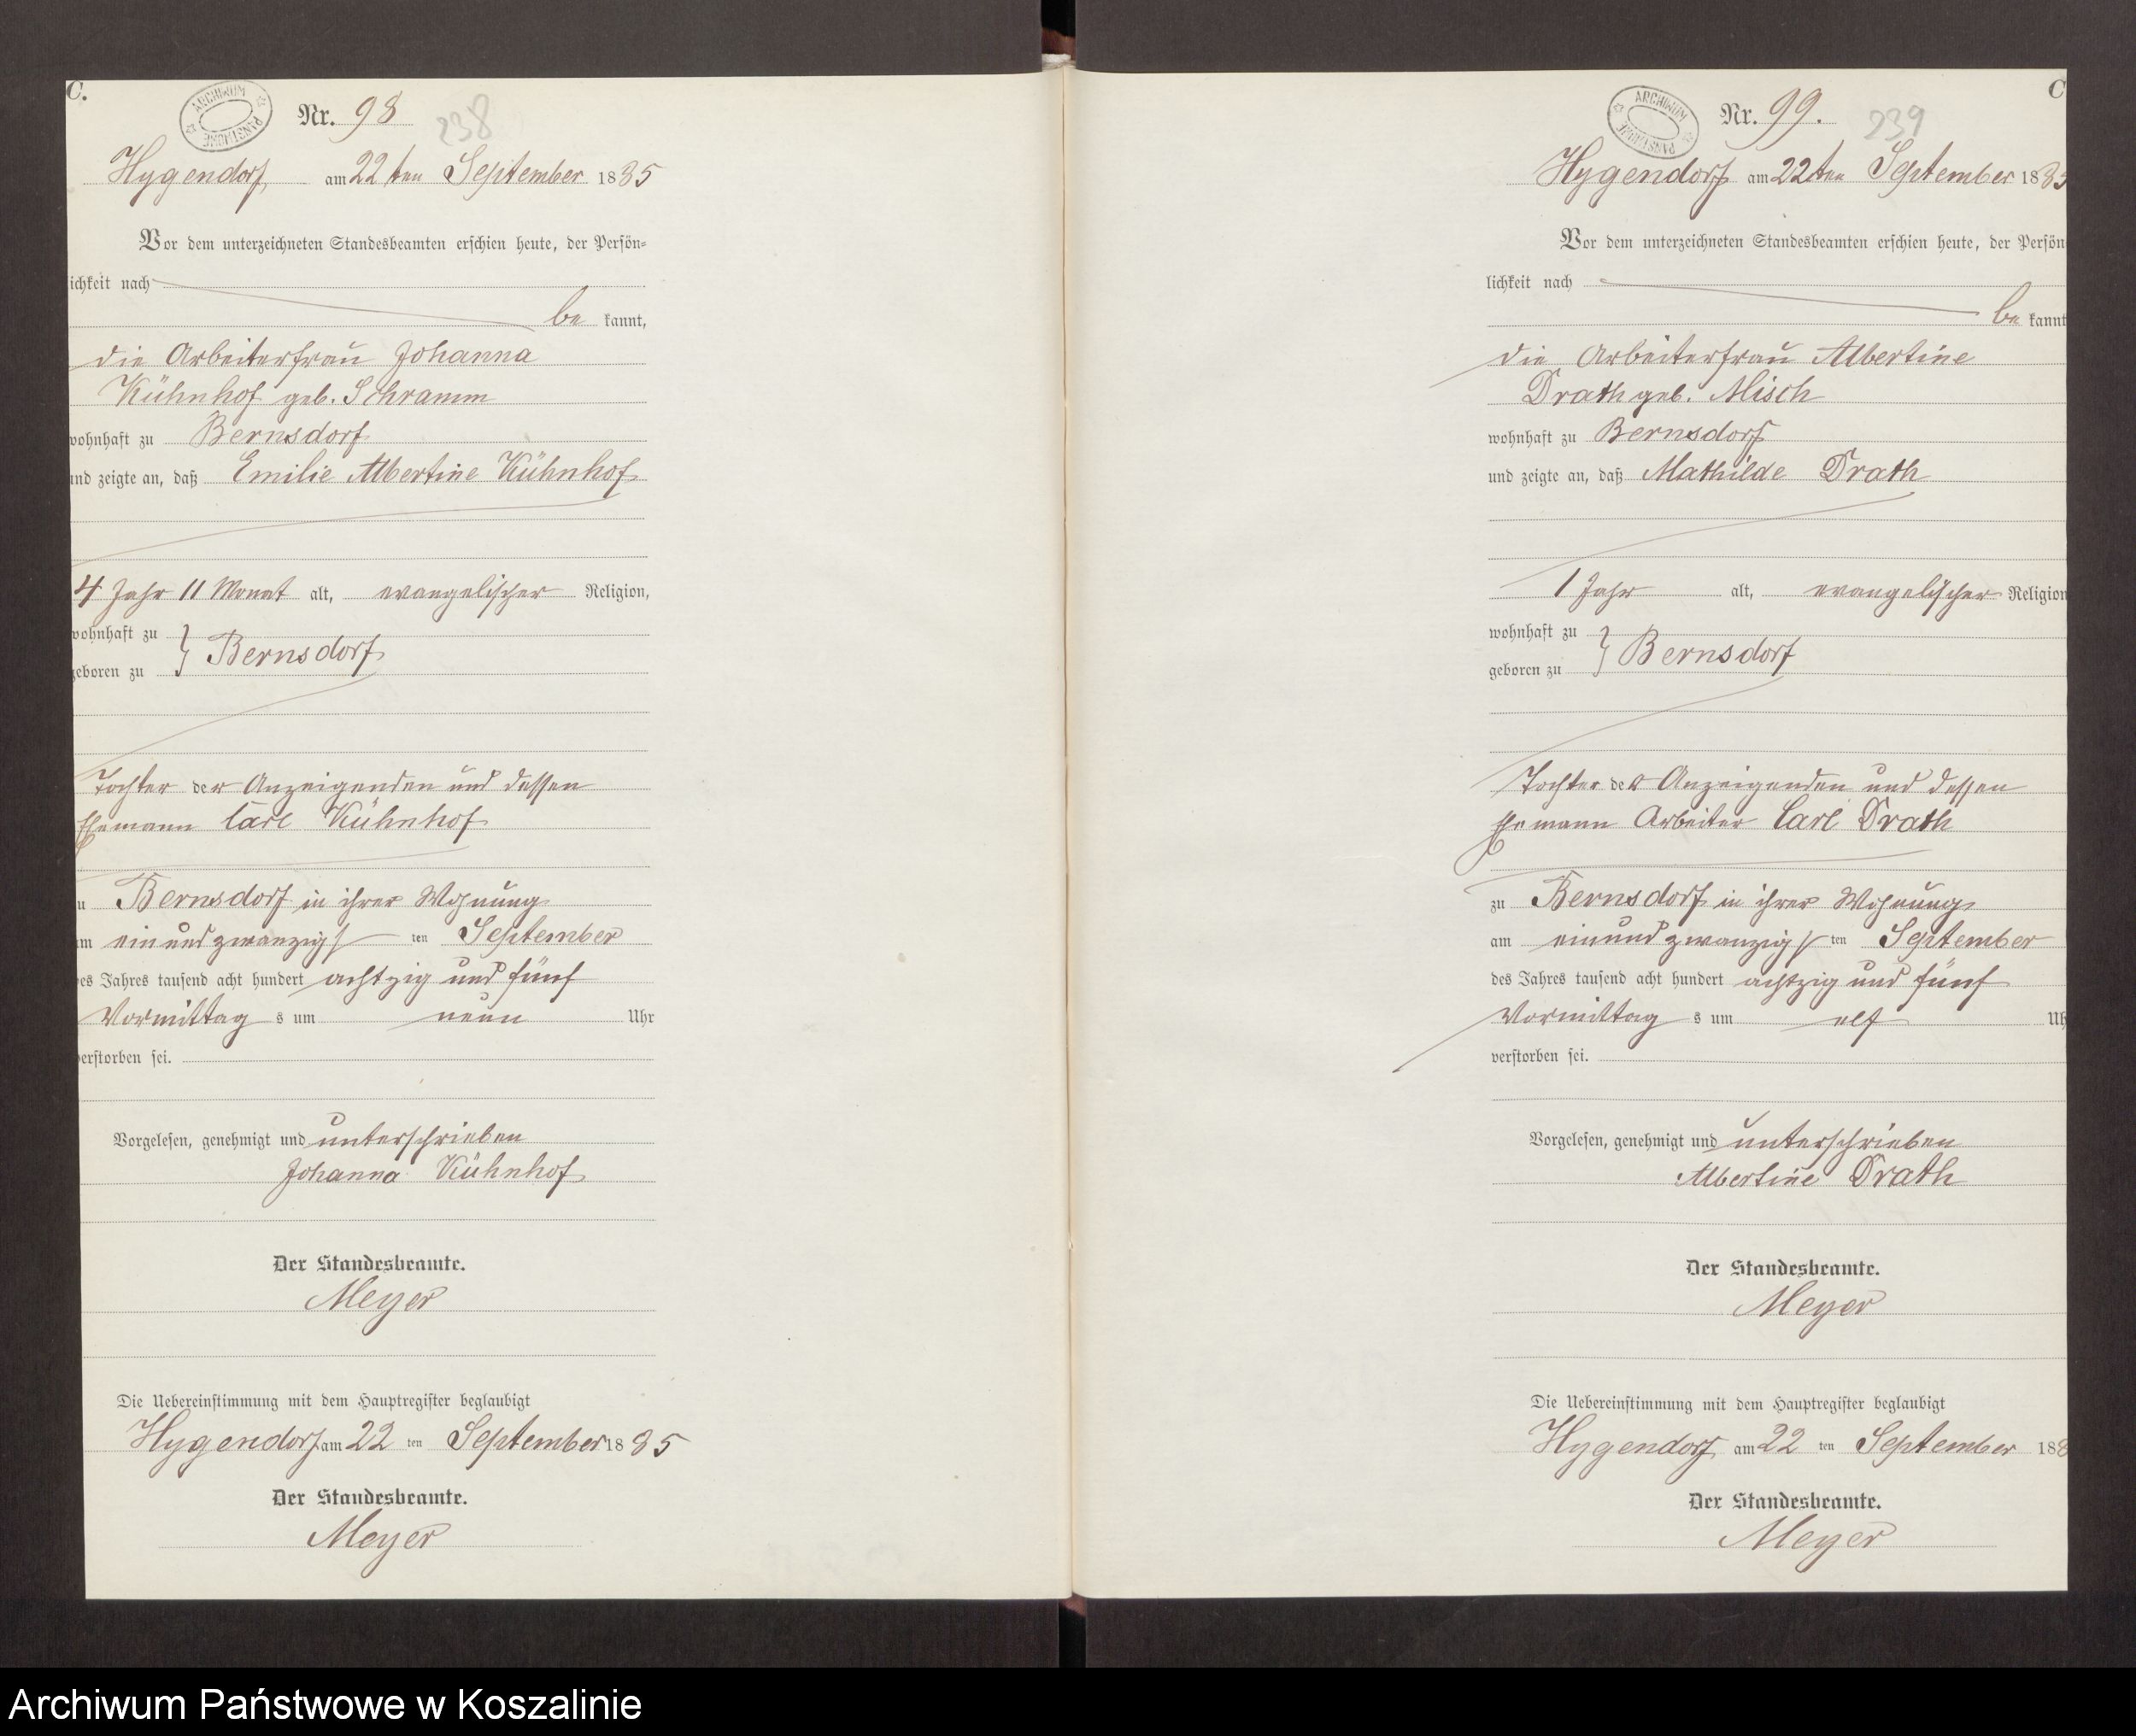 C.
ARCHIWUM PAŃSTWOWE
Nr. 98
238
Hygendorf, am 22ten September 1885
Vor dem unterzeichneten Standesbeamten erschien heute, der Persön=
lichkeit nach
be kannt,
die Arbeiterfrau Johanna
Kühnhof geb. Schramm
wohnhaft zu Bernsdorf
und zeigte an, daß Emilie Albertine Kühnhof
4 Jahr 11 Monat alt, evangelischer Religion,
wohnhaft zu
geboren zu } Bernsdorf
Tochter der Anzeigenden und dessen
Ehemann Carl Kühnhof
zu Bernsdorf in ihrer Wohnung
am ein und zwanzigs ten September
des Jahres tausend acht hundert achtzig und fünf
Vormittag s um neun Uhr
verstorben sei.
Vorgelesen, genehmigt und unterschrieben
Johanna Kühnhof
Der Standesbeamte.
Meyer
Die Uebereinstimmung mit dem Hauptregister beglaubigt
Hygendorf am 22 ten September 1885
Der Standesbeamte.
Meyer
C
ARCHIWUM PAŃSTWOWE
Nr. 99.
239
Hygendorf am 22ten September 1885
Vor dem unterzeichneten Standesbeamten erschien heute, der Persön
lichkeit nach
be kannt
die Arbeiterfrau Albertine
Drath geb. Misch
wohnhaft zu Bernsdorf
und zeigte an, daß Mathilde Drath
1 Jahr alt, evangelischer Religion
wohnhaft zu
geboren zu } Bernsdorf
Tochter der Anzeigenden und dessen
Ehemann Arbeiter Carl Drath
zu Bernsdorf in ihrer Wohnung
am einund zwanzigs ten September
des Jahres tausend acht hundert achtzig und fünf
Vormittag s um elf Uh
verstorben sei.
Vorgelesen, genehmigt und unterschrieben
Albertine Drath
Der Standesbeamte.
Meyer
Die Uebereinstimmung mit dem Hauptregister beglaubigt
Hygendorf, am 22 ten September 188
Der Standesbeamte.
Meyer
Archiwum Państwowe w Koszalinie